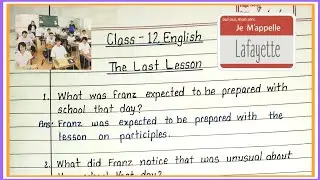 oui oui, mon ami
Je M'appelle
Lafayette
Class - 12, English
The Last Lesson
1. What was Franz expected to be prepared with
school that day?
Ans: Franz was expected to be prepared with the
lesson on participles.
2. What did Franz notice that was unusual about